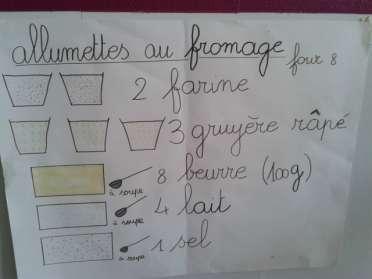 allumettes au fromage four 8
2 farine
3 gruyère râpé
à soupe 8 beurre (100g)
à soupe 4 lait
à soupe 1 sel